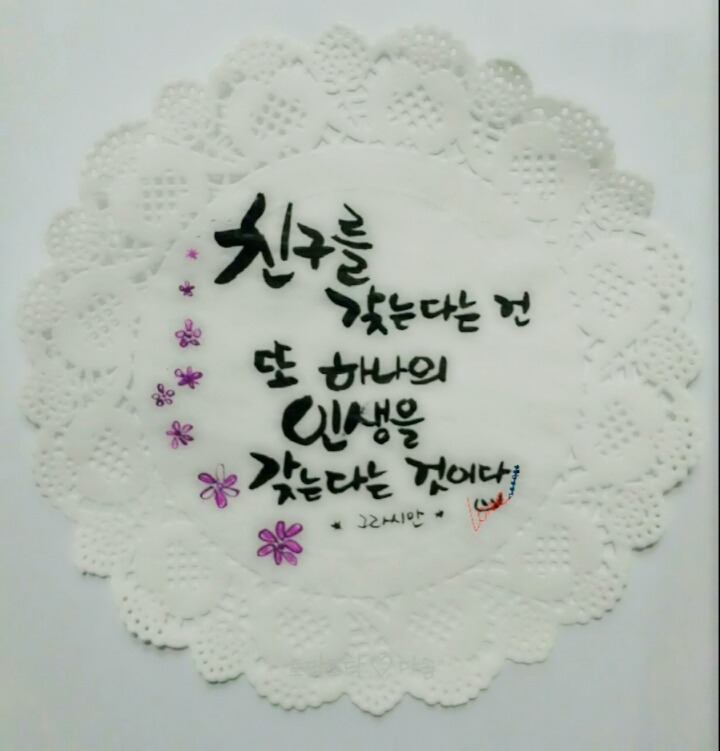 친구를
갖는다는 건
또 하나의
인생을
갖는다는 것이다
* 그라시안 *